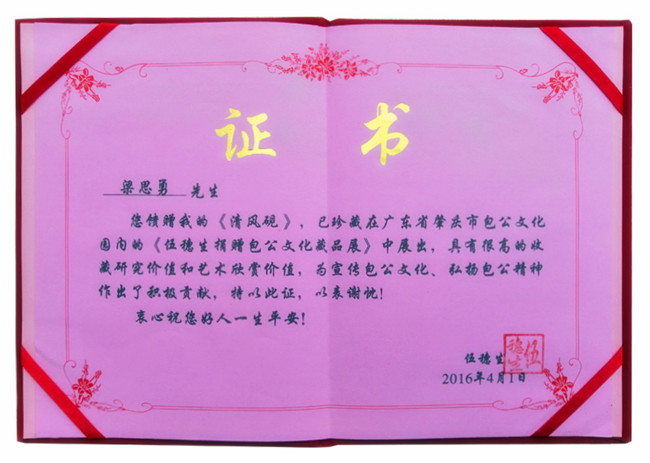 证 书
梁思勇 先生
您馈赠我的《清风砚》，已珍藏在广东省肇庆市包公文化
园内的《伍穗生捐赠包公文化藏品展》中展出，具有很高的收
藏研究价值和艺术欣赏价值，为宣传包公文化、弘扬包公精神
作出了积极贡献，特以此证，以表谢忱！
衷心祝您好人一生平安！
伍穗生
伍穗生
2016年4月1日